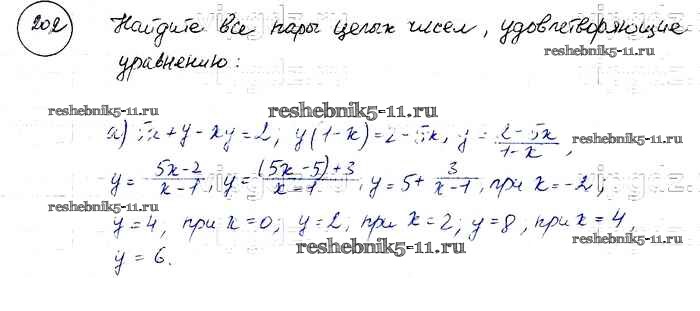 202 Найдите все пары целых чисел, удовлетворяющие
уравнению:
reshebnik5-11.ru reshebnik5-11.ru
reshebnik5-11.ru
а) 5x + y - xy = 2; y(1-x) = 2-5x, y = \frac{2-5x}{1-x},
y = \frac{5x-2}{x-1}, y = \frac{(5x-5)+3}{x-1}, y = 5 + \frac{3}{x-1}, при x = -2;
reshebnik5-11.ru
y = 4, при x = 0; y = 2, при x = 2; y = 8, при x = 4,
reshebnik5-11.ru reshebnik5-11.ru
y = 6.